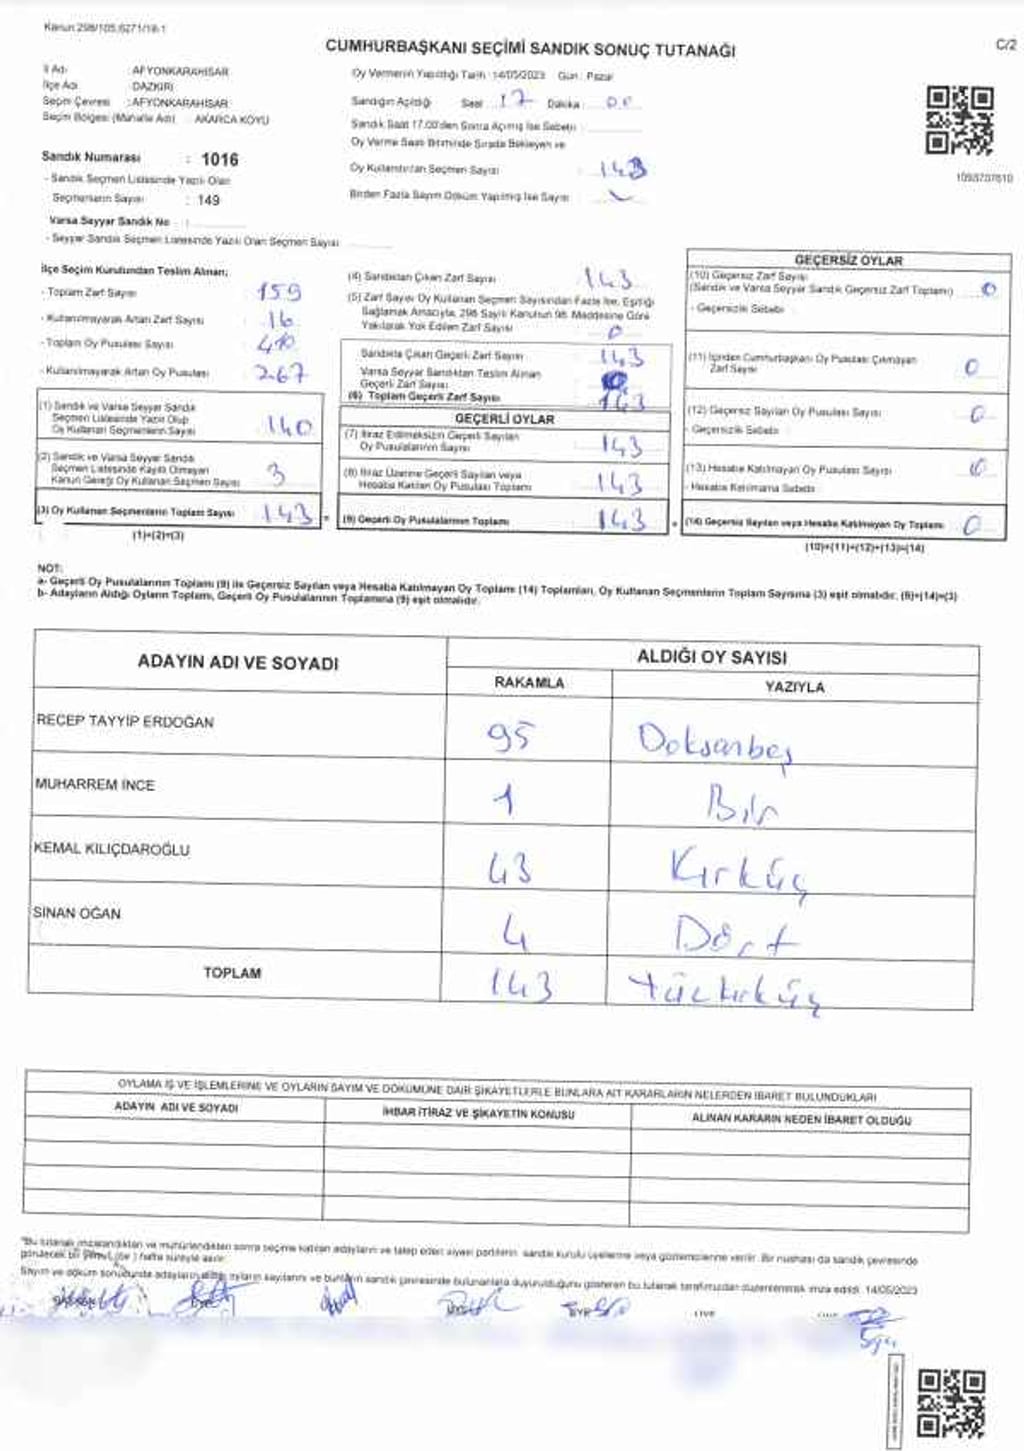 Kanun 298/105;6271/18-1
CUMHURBAŞKANI SEÇİMİ SANDIK SONUÇ TUTANAĞI
C/2
İl Adı : AFYONKARAHİSAR
İlçe Adı : DAZKIRI
Seçim Çevresi : AFYONKARAHİSAR
Seçim Bölgesi (Mahalle Adı) : AKARCA KOYU
Sandık Numarası : 1016
- Sandık Seçmen Listesinde Yazılı Olan
Seçmenlerin Sayısı : 149
Varsa Seyyar Sandık No :
- Seyyar Sandık Seçmen Listesinde Yazılı Olan Seçmen Sayısı
Oy Vermenin Yapıldığı Tarih : 14/05/2023 Gün : Pazar
Sandığın Açıldığı Saat : 17 Dakika : 00
Sandık Saat 17.00'den Sonra Açılmış İse Sebebi :
Oy Verme Saati Bitiminde Sırada Bekleyen ve
Oy Kullandırılan Seçmen Sayısı : 143
Birden Fazla Sayım Döküm Yapılmış İse Sayısı :
1093707610
İlçe Seçim Kurulundan Teslim Alınan;
- Toplam Zarf Sayısı 159
- Kullanılmayarak Artan Zarf Sayısı 16
- Toplam Oy Pusulası Sayısı 410
- Kullanılmayarak Artan Oy Pusulası 267
(1) Sandık ve Varsa Seyyar Sandık
Seçmen Listesinde Yazılı Olup
Oy Kullanan Seçmenlerin Sayısı 140
(2) Sandık ve Varsa Seyyar Sandık
Seçmen Listesinde Kayıtlı Olmayan
Kanun Gereği Oy Kullanan Seçmen Sayısı 3
(3) Oy Kullanan Seçmenlerin Toplam Sayısı 143 =
(1)+(2)=(3)
(4) Sandıktan Çıkan Zarf Sayısı 143
(5) Zarf Sayısı Oy Kullanan Seçmen Sayısından Fazla İse, Eşitliği
Sağlamak Amacıyla, 298 Sayılı Kanunun 98. Maddesine Göre
Yakılarak Yok Edilen Zarf Sayısı 0
Sandıkta Çıkan Geçerli Zarf Sayısı 143
Varsa Seyyar Sandıktan Teslim Alınan
Geçerli Zarf Sayısı
(6) Toplam Geçerli Zarf Sayısı 143
GEÇERLİ OYLAR
(7) İtiraz Edilmeksizin Geçerli Sayılan
Oy Pusulalarının Sayısı 143
(8) İtiraz Üzerine Geçerli Sayılan veya
Hesaba Katılan Oy Pusulası Toplamı 143
(9) Geçerli Oy Pusulalarının Toplamı 143 +
GEÇERSİZ OYLAR
(10) Geçersiz Zarf Sayısı
(Sandık ve Varsa Seyyar Sandık Geçersiz Zarf Toplamı) 0
- Geçersizlik Sebebi
(11) İçinden Cumhurbaşkanı Oy Pusulası Çıkmayan
Zarf Sayısı 0
(12) Geçersiz Sayılan Oy Pusulası Sayısı 0
- Geçersizlik Sebebi
(13) Hesaba Katılmayan Oy Pusulası Sayısı 0
- Hesaba Katılmama Sebebi
(14) Geçersiz Sayılan veya Hesaba Katılmayan Oy Toplamı 0
(10)+(11)+(12)+(13)=(14)
NOT:
a- Geçerli Oy Pusulalarının Toplamı (9) ile Geçersiz Sayılan veya Hesaba Katılmayan Oy Toplamı (14) Toplamları, Oy Kullanan Seçmenlerin Toplam Sayısına (3) eşit olmalıdır; (9)+(14)=(3)
b- Adayların Aldığı Oyların Toplamı, Geçerli Oy Pusulalarının Toplamına (9) eşit olmalıdır.
ADAYIN ADI VE SOYADI ALDIĞI OY SAYISI
RAKAMLA YAZIYLA
RECEP TAYYİP ERDOĞAN 95 Doksanbeş
MUHARREM İNCE 1 Bir
KEMAL KILIÇDAROĞLU 43 Kırküç
SİNAN OĞAN 4 Dört
TOPLAM 143 Yüzkırküç
OYLAMA İŞ VE İŞLEMLERİNE VE OYLARIN SAYIM VE DÖKÜMÜNE DAİR ŞİKAYETLERLE BUNLARA AİT KARARLARIN NELERDEN İBARET BULUNDUKLARI
ADAYIN ADI VE SOYADI İHBAR İTİRAZ VE ŞİKAYETİN KONUSU ALINAN KARARIN NEDEN İBARET OLDUĞU
*Bu tutanak imzalandıktan ve mühürlendikten sonra seçime katılan adayların ve talep eden siyasi partilerin sandık kurulu üyelerine veya gözlemcilerine verilir. Bir nüshası da sandık çevresinde
görülecek bir yere hafta süreyle asılır.
Sayım ve döküm sonucunda adayların aldığı oyların sayılarını ve bunların sandık çevresinde bulunanlara duyurulduğunu gösteren bu tutanak tarafımızdan düzenlenerek imza edildi. 14/05/2023